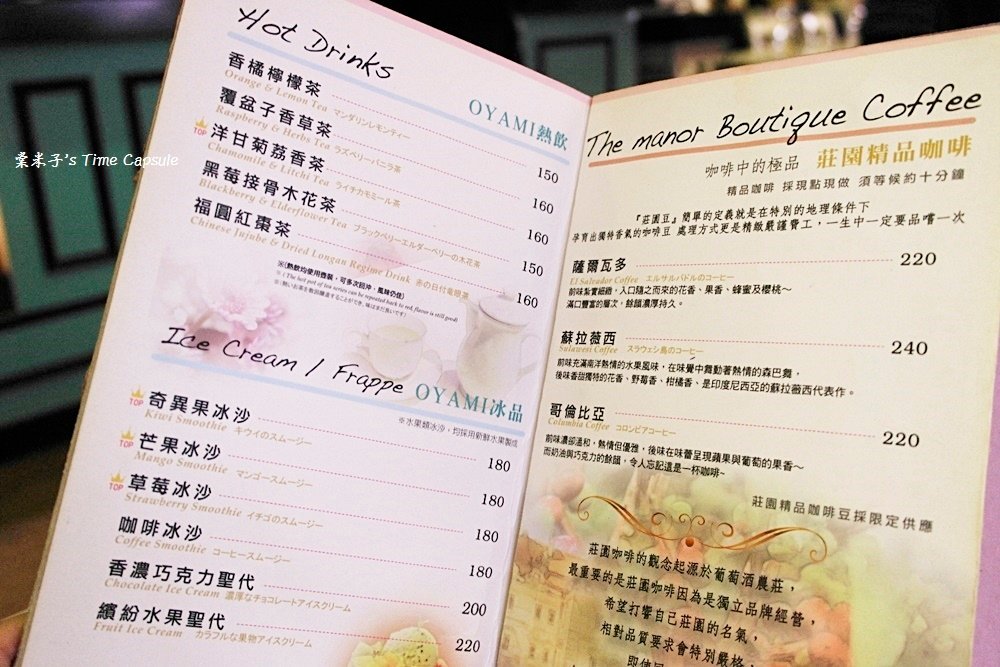 栗米子's Time Capsule
Hot Drinks
OYAMI熱飲
香橘檸檬茶 150
Orange & Lemon Tea マンダリンレモンティー
覆盆子香草茶 160
Raspberry & Herbs Tea ラズベリーバニラ茶
TOP 洋甘菊荔香茶 160
Chamomile & Litchi Tea ライチカモミール茶
黑莓接骨木花茶 150
Blackberry & Elderflower Tea ブラックベリーエルダーベリーの木花茶
福圓紅棗茶 160
Chinese Jujube & Dried Longan Regime Drink 赤の日付竜眼茶
※(熱飲均使用壺裝，可多次回沖，風味仍佳)
※( The hot pot of tea series can be repeated back to red, flavor is still good)
Ice Cream / Frappe
OYAMI冰品
※水果類冰沙，均採用新鮮水果製成
TOP 奇異果冰沙 180
Kiwi Smoothie キウイのスムージー
TOP 芒果冰沙 180
Mango Smoothie マンゴースムージー
TOP 草莓冰沙 180
Strawberry Smoothie イチゴのスムージー
咖啡冰沙 180
Coffee Smoothie コーヒースムージー
香濃巧克力聖代 200
Chocolate Ice Cream 濃厚なチョコレートアイスクリーム
繽紛水果聖代 220
Fruit Ice Cream カラフルな果物アイスクリーム
The manor Boutique Coffee
咖啡中的極品 莊園精品咖啡
精品咖啡 採現點現做 須等候約十分鐘
『莊園豆』簡單的定義就是在特別的地理條件下
孕育出獨特香氣的咖啡豆 處理方式更是精緻嚴謹費工，一生中一定要品嚐一次
薩爾瓦多 220
El Salvador Coffee エルサルバドルのコーヒー
前味紮實細緻，入口隨之而來的花香、果香、蜂蜜及櫻桃～
滿口豐富的層次，餘韻濃厚持久。
蘇拉薇西 240
Sulawesi Coffee スラウェシ島のコーヒー
前味充滿南洋熱情的水果風味，在味覺中舞動著熱情的森巴舞，
後味香甜獨特的花香、野莓香、柑橘香、是印度尼西亞的蘇拉薇西代表作。
哥倫比亞 220
Columbia Coffee コロンビアコーヒー
前味濃卻溫和，熱情但優雅，後味在味蕾呈現蘋果與葡萄的果香～
而奶油與巧克力的餘韻，令人忘記這是一杯咖啡~
莊園精品咖啡豆採限定供應
莊園咖啡的觀念起源於葡萄酒農莊，
最重要的是莊園咖啡因為是獨立品牌經營，
希望打響自己莊園的名氣，
相對品質要求會特別嚴格，